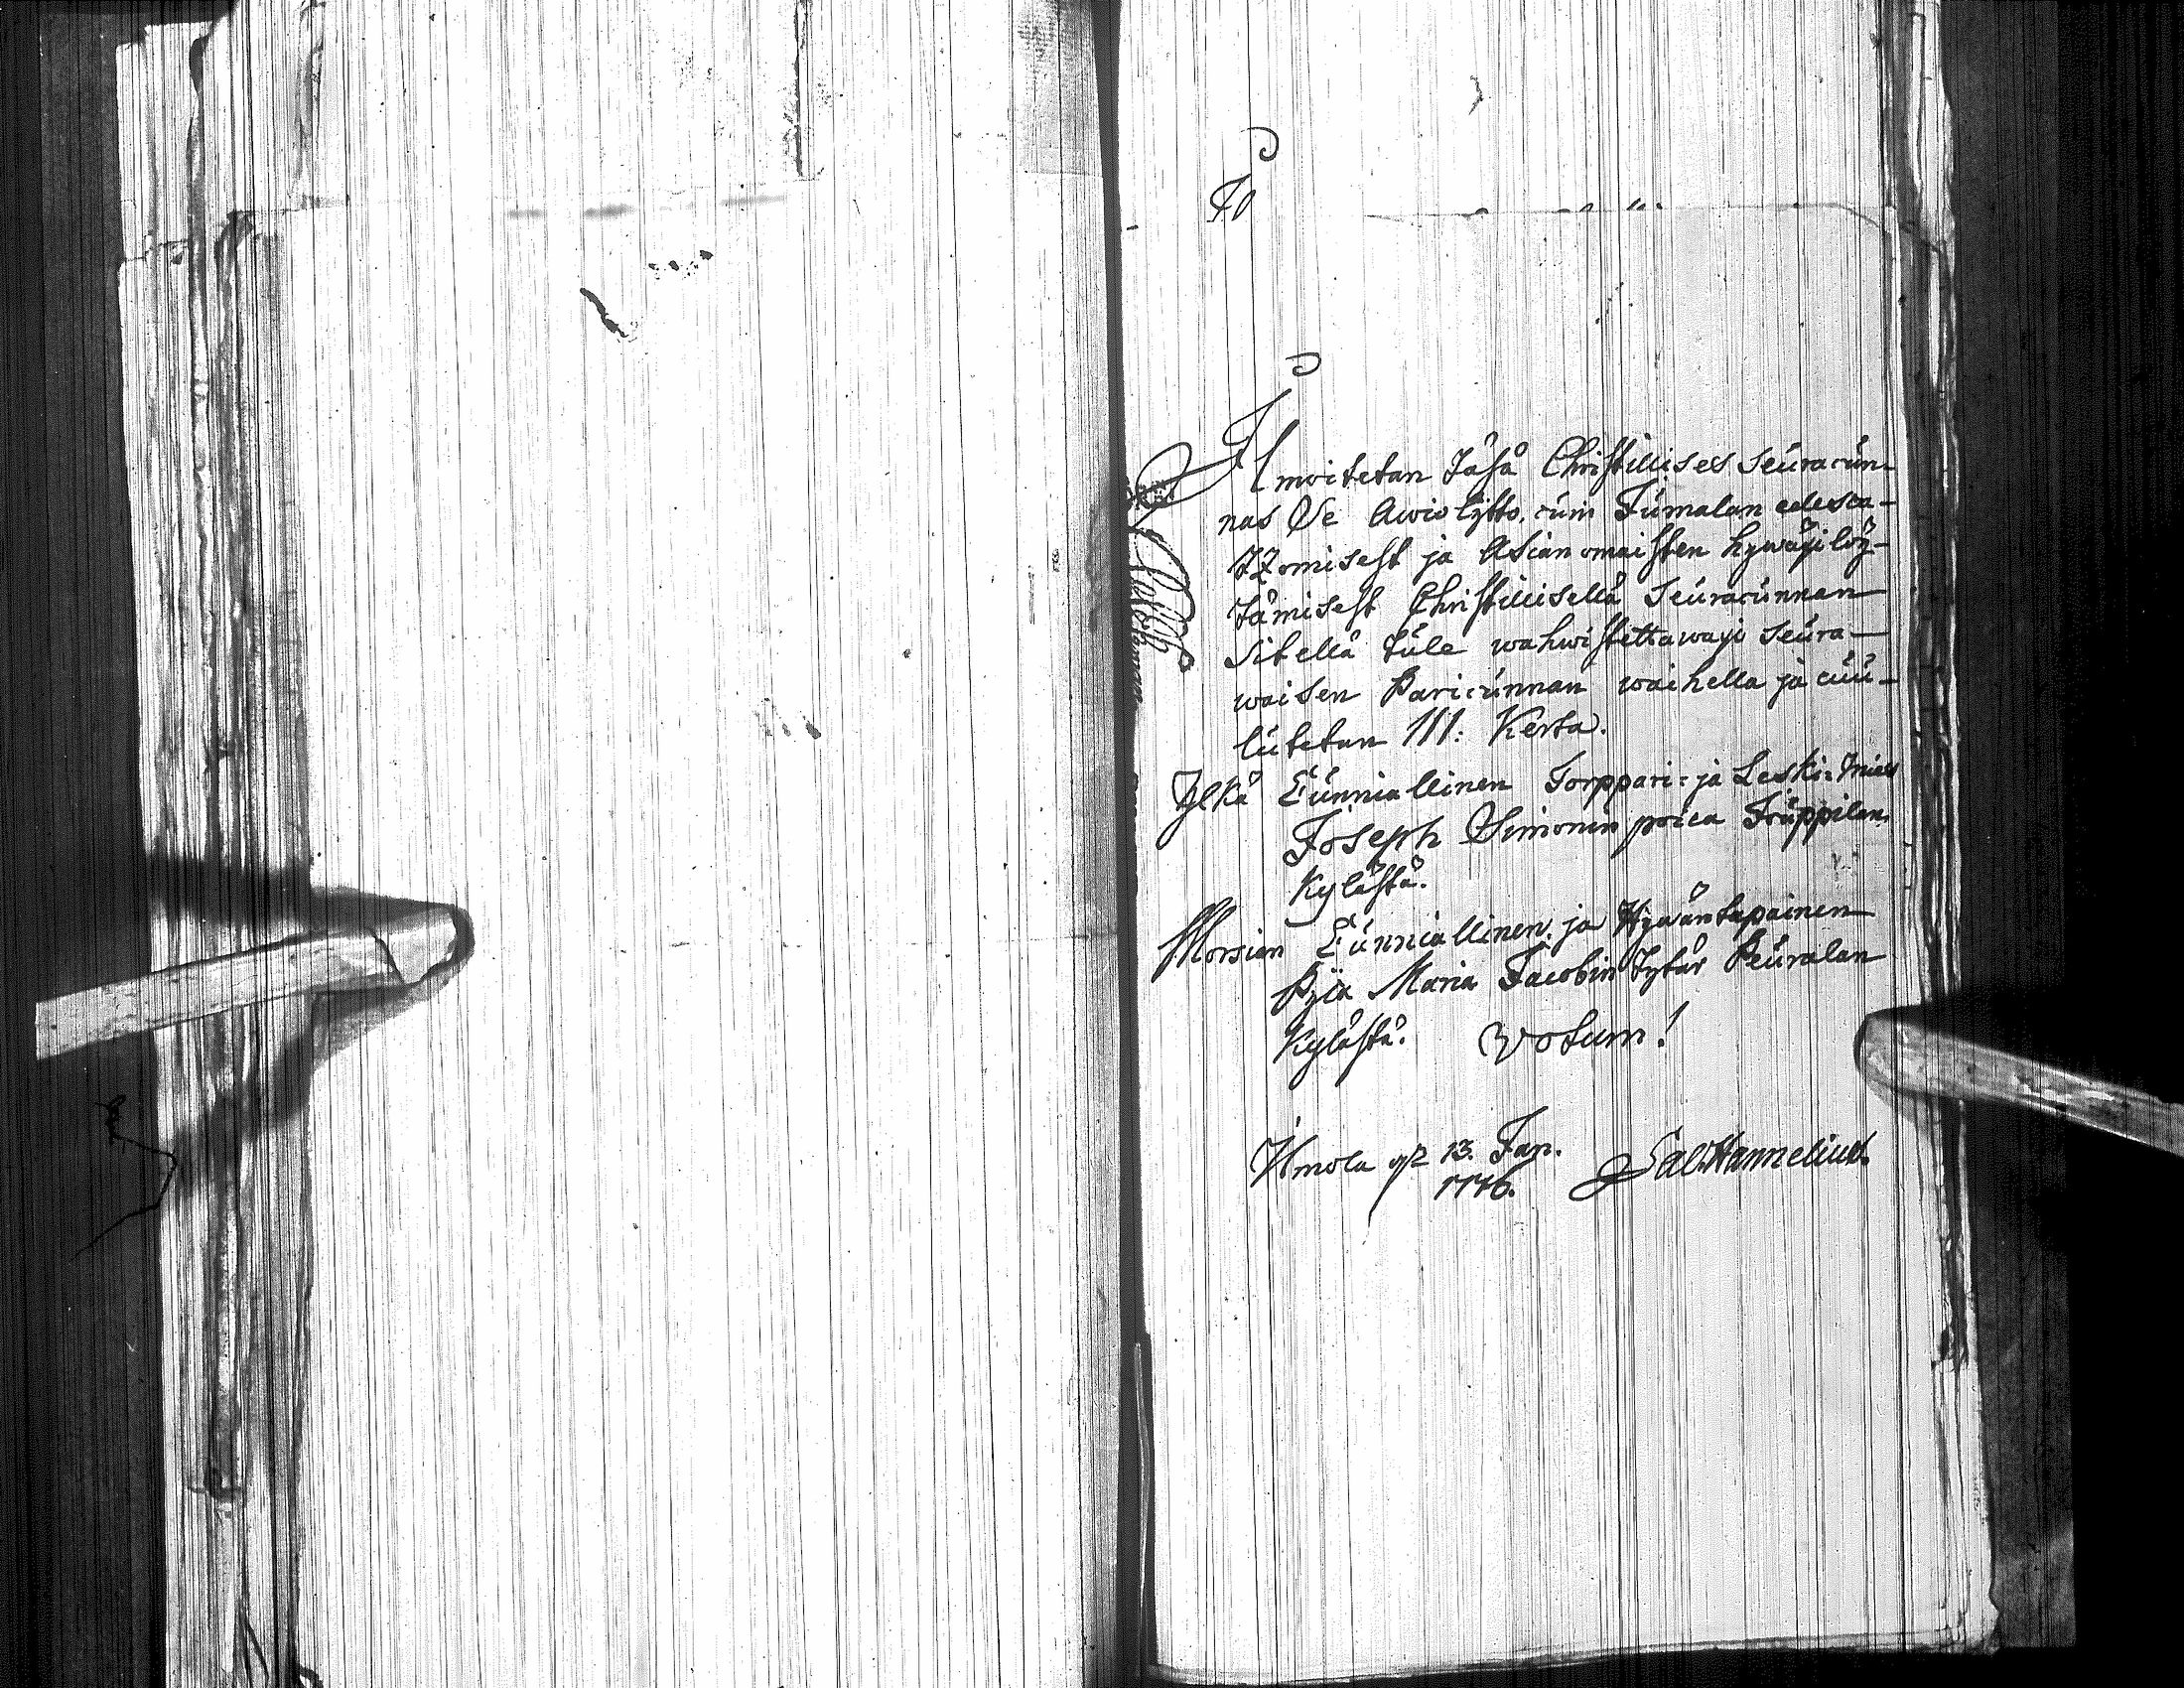 Ilmoitetan Täsä Christillises Seuracun-
nas Se Awiolijtto, cuin Jumalan edesca-
tzomisest ja Asianomaisten hywäxilöy-
tämisest Christillisellä Seuracunnan
sitellä tule wahwistettawaxi seura-
waisen Paricunnan waihella ja cuu-
lutetan III: Kerta.
Ylkä Cunniallinen Torppari- ja Leski-Mies
Joseph Simonin poica Jouppilan
Kylästä.
Morsian Cunniallinen ja Hywäntapainen
Pijca Maria Jacobin Tytär Peuralan
Kylästä. Votum!
Ilmola 13. Jan.
1776. Sal. Hannelius.